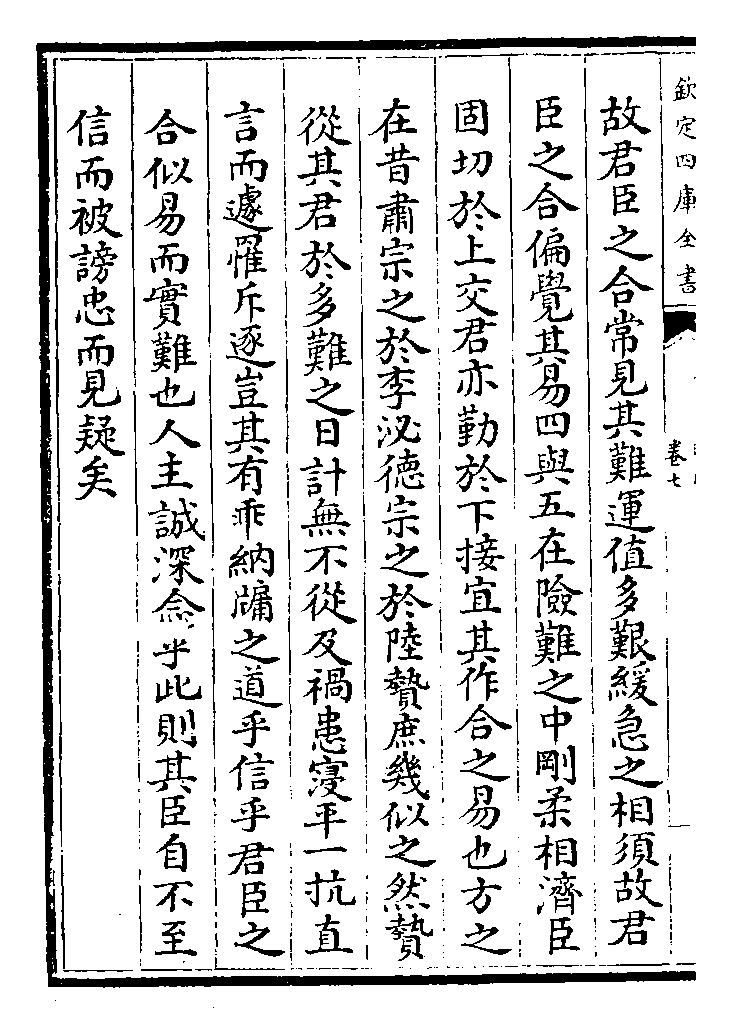 欽定四庫全書
卷七
故君臣之合常見其難運值多艱緩急之相須故君
臣之合偏覺其易四與五在險難之中剛柔相濟臣
固切於上交君亦勤於下接宜其作合之易也方之
在昔肅宗之於李泌德宗之於陸贄庶幾似之然贄
從其君於多難之日計無不從及禍患寖平一抗直
言而遽罹斥逐豈其有乖納牖之道乎信乎君臣之
合似易而實難也人主誠深念乎此則其臣自不至
信而被謗忠而見疑矣